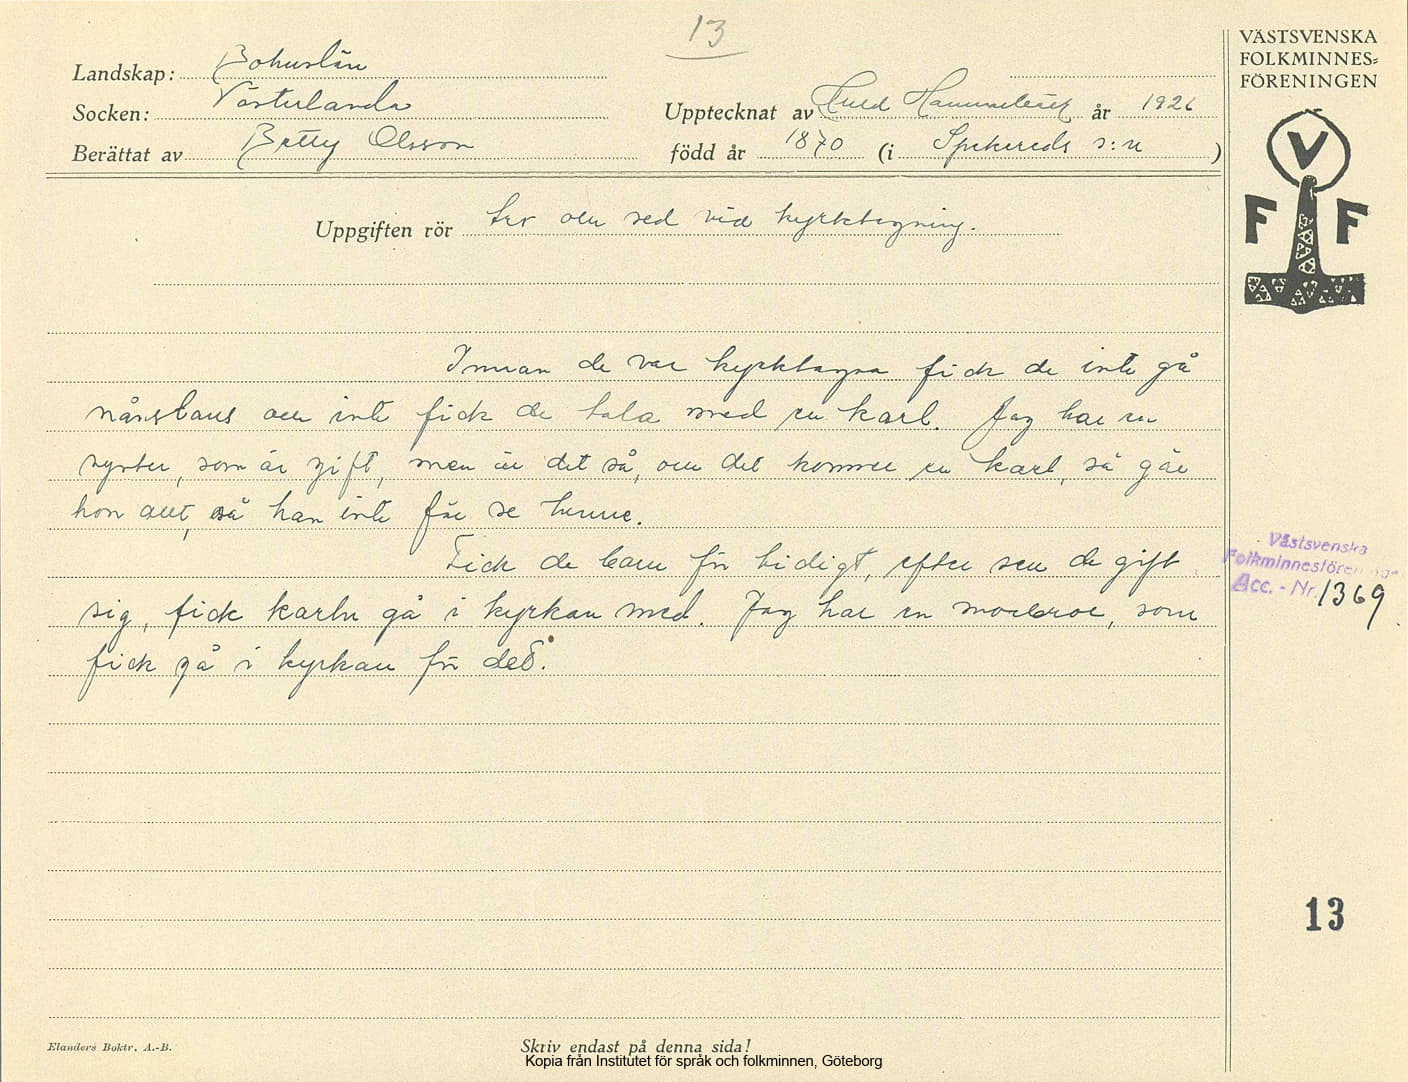 13
VÄSTSVENSKA
FOLKMINNES=
FÖRENINGEN
Landskap: Bohuslän
Socken: Västerlanda
Upptecknat av Huld Hammarbäck år 1926
Berättat av Betty Olsson
född år 1870 (i Spekereds s:n)
V
F F
Uppgiften rör tro och sed vid kyrktagning.
Innan de var kyrktagna fick de inte gå
nånstans och inte fick de tala med en karl. Jag har en
syster, som är gift, men är det så, att det kommer en karl, så går
hon ut, så han inte får se henne.
Fick de barn för tidigt, efter sen de gift
sig, fick karln gå i kyrkan med. Jag har en morbror, som
fick gå i kyrkan för det.
Västsvenska
Folkminnesföreningen
Acc. - Nr. 1369
13
Elanders Boktr. A.-B.
Skriv endast på denna sida!
Kopia från Institutet för språk och folkminnen, Göteborg